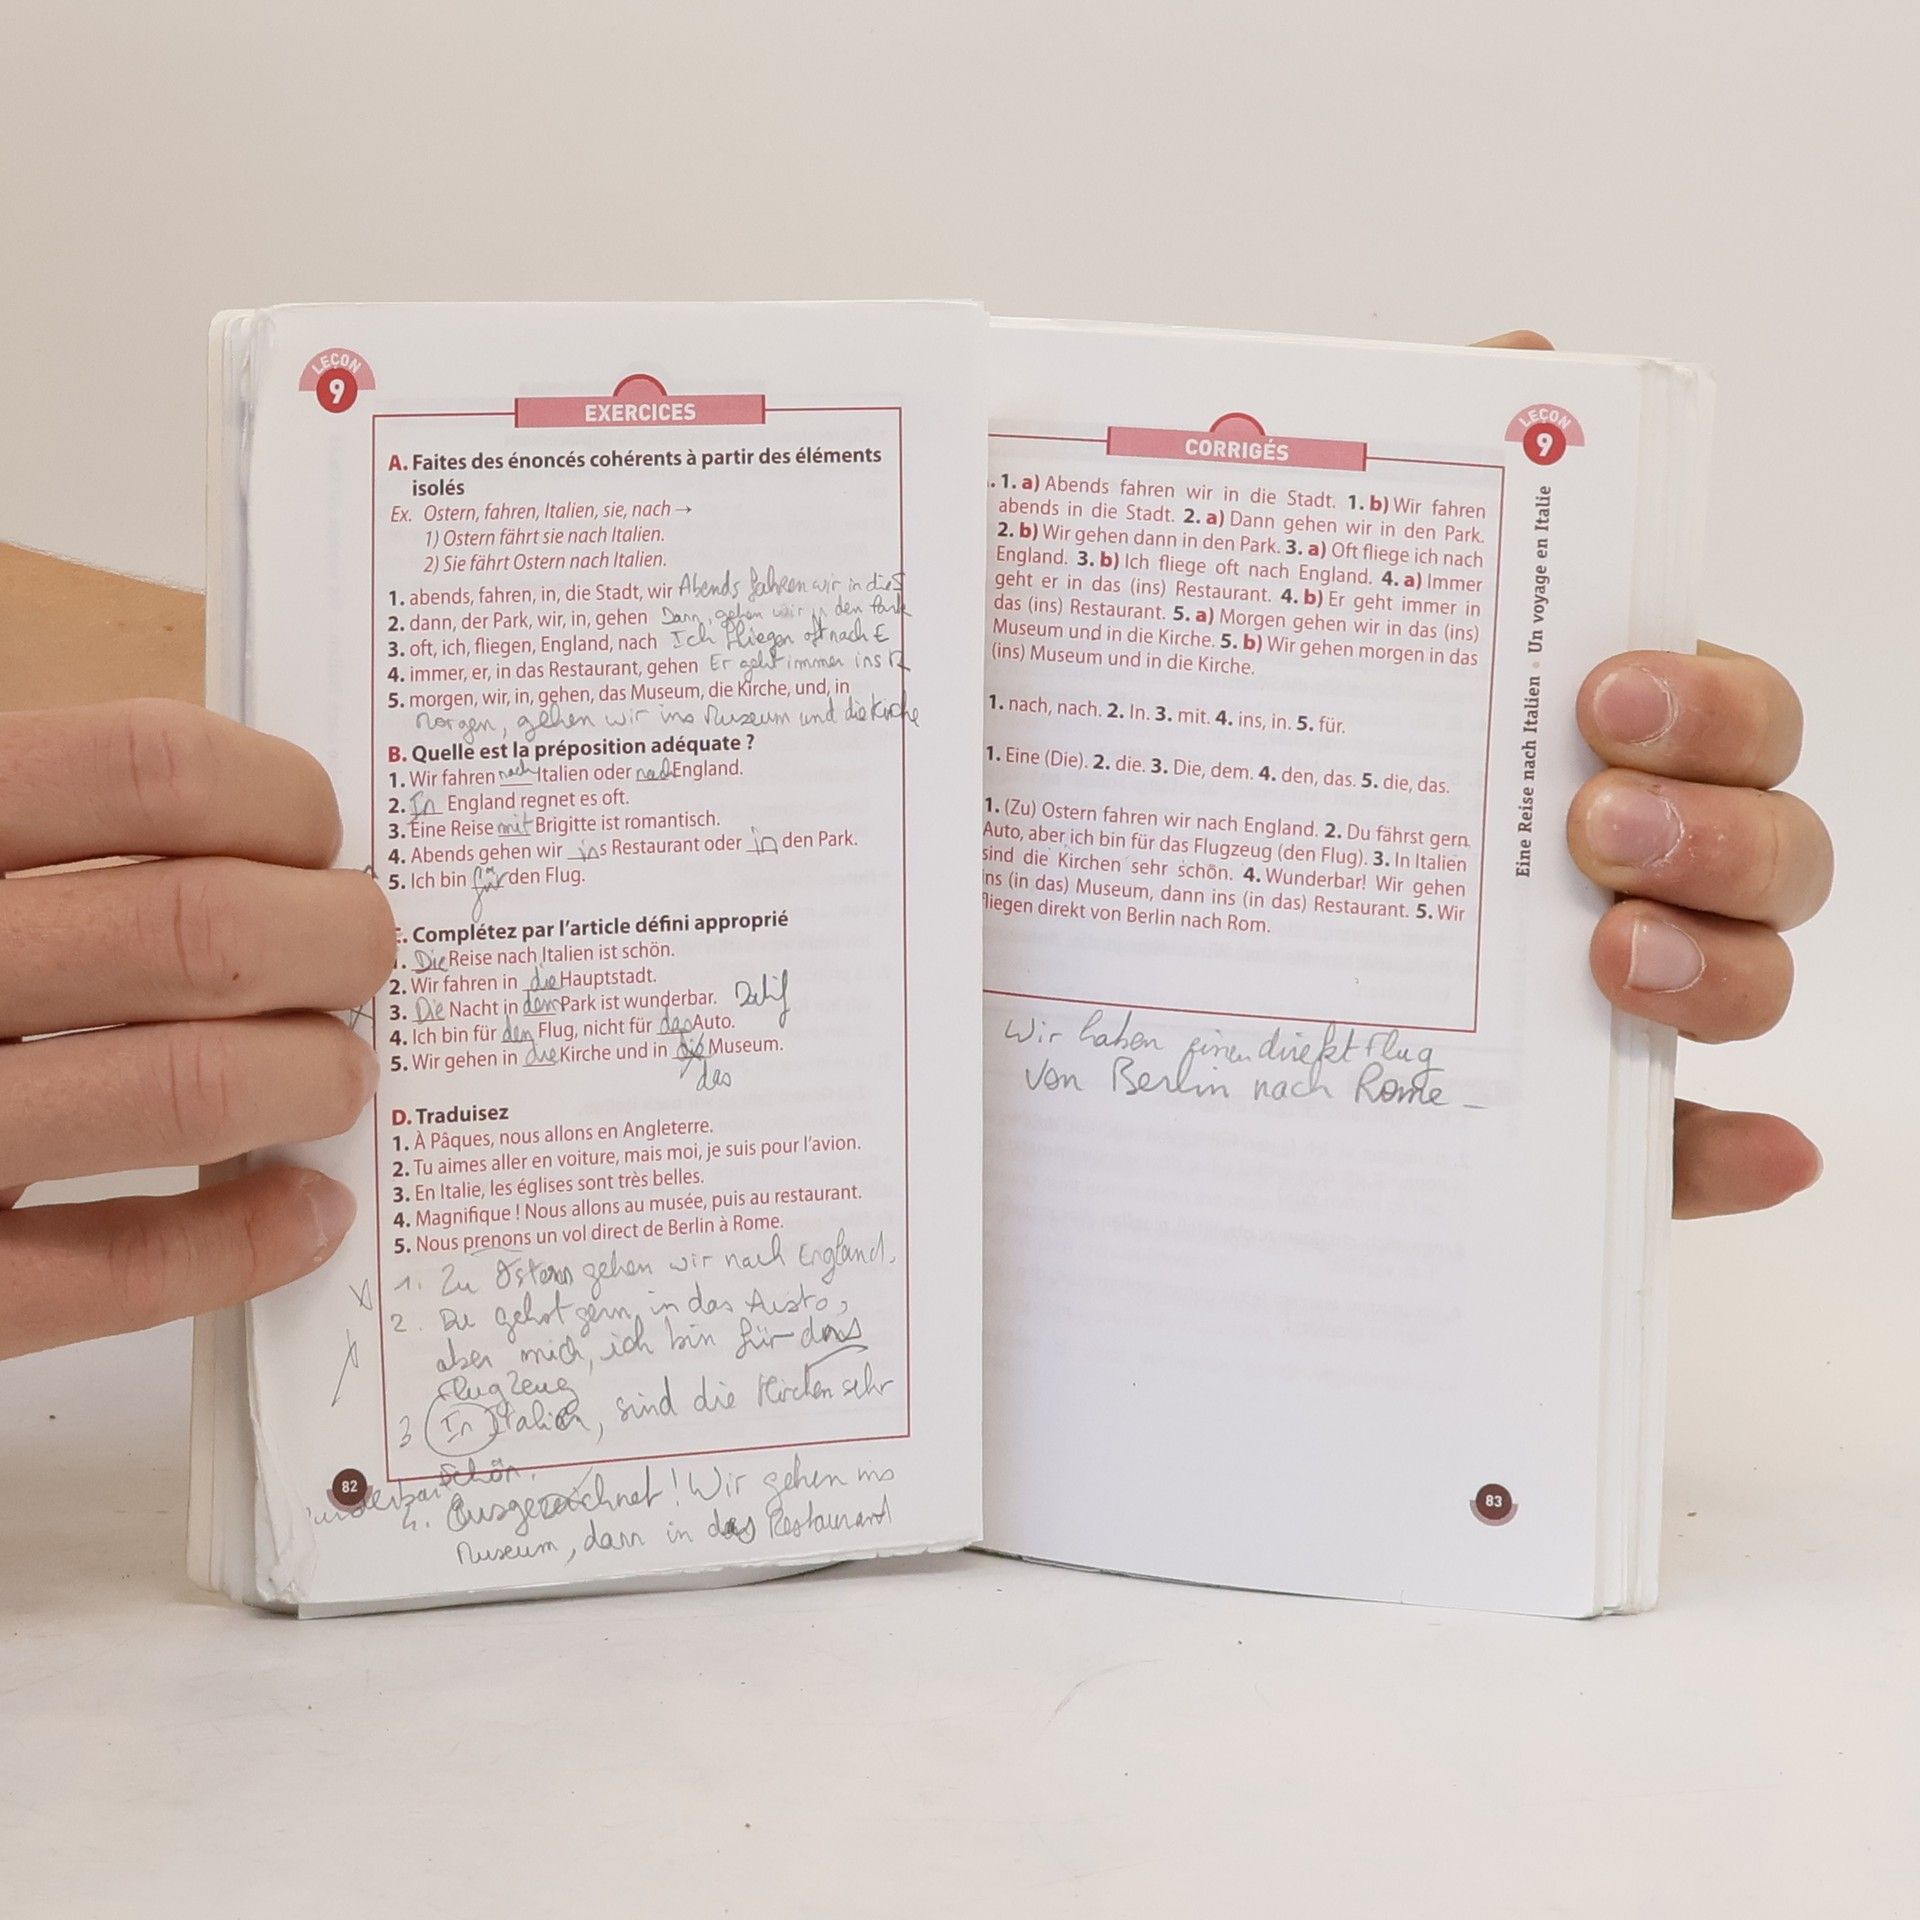 LEÇON
9
EXERCICES
A. Faites des énoncés cohérents à partir des éléments
isolés
Ex. Ostern, fahren, Italien, sie, nach →
1) Ostern fährt sie nach Italien.
2) Sie fährt Ostern nach Italien.
1. abends, fahren, in, die Stadt, wir Abends fahren wir in die S
2. dann, der Park, wir, in, gehen Dann, gehen wir in den Park
3. oft, ich, fliegen, England, nach Ich fliegen oft nach E
4. immer, er, in das Restaurant, gehen Er geht immer ins R
5. morgen, wir, in, gehen, das Museum, die Kirche, und, in
Morgen, gehen wir ins Museum und die Kirche
B. Quelle est la préposition adéquate ?
1. Wir fahren nach Italien oder nach England.
2. In England regnet es oft.
3. Eine Reise mit Brigitte ist romantisch.
4. Abends gehen wir ins Restaurant oder in den Park.
5. Ich bin für den Flug.
C. Complétez par l'article défini approprié
1. Die Reise nach Italien ist schön.
2. Wir fahren in die Hauptstadt.
3. Die Nacht in dem Park ist wunderbar. Datif
4. Ich bin für den Flug, nicht für das Auto.
5. Wir gehen in die Kirche und in die Museum.
das
D. Traduisez
1. À Pâques, nous allons en Angleterre.
2. Tu aimes aller en voiture, mais moi, je suis pour l'avion.
3. En Italie, les églises sont très belles.
4. Magnifique ! Nous allons au musée, puis au restaurant.
5. Nous prenons un vol direct de Berlin à Rome.
1. Zu Ostern gehen wir nach England,
2. Du gehst gern in das Auto,
aber mich, ich bin für das
Flugzeug
3 In Italien, sind die Kirchen sehr
schön.
4. Ausgezeichnet! Wir gehen ins
Museum, dann in das Restaurant
82
LEÇON
9
CORRIGÉS
. 1. a) Abends fahren wir in die Stadt. 1. b) Wir fahren
abends in die Stadt. 2. a) Dann gehen wir in den Park.
2. b) Wir gehen dann in den Park. 3. a) Oft fliege ich nach
England. 3. b) Ich fliege oft nach England. 4. a) Immer
geht er in das (ins) Restaurant. 4. b) Er geht immer in
das (ins) Restaurant. 5. a) Morgen gehen wir in das (ins)
Museum und in die Kirche. 5. b) Wir gehen morgen in das
(ins) Museum und in die Kirche.
1. nach, nach. 2. In. 3. mit. 4. ins, in. 5. für.
1. Eine (Die). 2. die. 3. Die, dem. 4. den, das. 5. die, das.
1. (Zu) Ostern fahren wir nach England. 2. Du fährst gern
Auto, aber ich bin für das Flugzeug (den Flug). 3. In Italien
sind die Kirchen sehr schön. 4. Wunderbar! Wir gehen
ins (in das) Museum, dann ins (in das) Restaurant. 5. Wir
fliegen direkt von Berlin nach Rom.
Wir haben einen direkt Flug
von Berlin nach Rome –
Eine Reise nach Italien • Un voyage en Italie
83